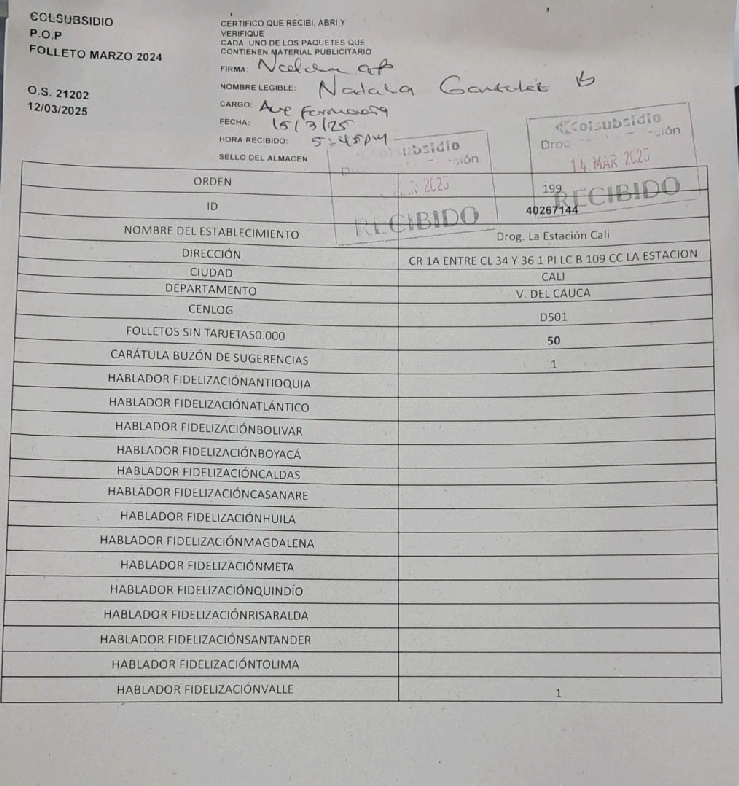 COLSUBSIDIO
P.O.P
FOLLETO MARZO 2024
O.S. 21202
12/03/2025
CERTIFICO QUE RECIBI, ABRI Y
VERIFIQUE
CADA UNO DE LOS PAQUETES QUE
CONTIENEN MATERIAL PUBLICITARIO
FIRMA:
NOMBRE LEGIBLE: Natalia
CARGO: Aux
FECHA: 15/3/25
HORA RECIBIDO: 5:45pm
SELLO DEL ALMACEN
2025
RECIBIDO
Colsubsidio
14 MAR 2025
RECIBIDO
ORDEN 199
ID 40267144
NOMBRE DEL ESTABLECIMIENTO Drog. La Estación Cali
DIRECCIÓN CR 1A ENTRE CL 34 Y 36 1 PI LC B 109 CC LA ESTACION
CIUDAD CALI
DEPARTAMENTO V. DEL CAUCA
CENLOG D501
FOLLETOS SIN TARJETA50.000 50
CARÁTULA BUZÓN DE SUGERENCIAS 1
HABLADOR FIDELIZACIÓNANTIOQUIA
HABLADOR FIDELIZACIÓNATLÁNTICO
HABLADOR FIDELIZACIÓNBOLIVAR
HABLADOR FIDELIZACIÓNBOYACÁ
HABLADOR FIDELIZACIÓNCALDAS
HABLADOR FIDELIZACIÓNCASANARE
HABLADOR FIDELIZACIÓNHUILA
HABLADOR FIDELIZACIÓNMAGDALENA
HABLADOR FIDELIZACIÓNMETA
HABLADOR FIDELIZACIÓNQUINDÍO
HABLADOR FIDELIZACIÓNRISARALDA
HABLADOR FIDELIZACIÓNSANTANDER
HABLADOR FIDELIZACIÓNTOLIMA
HABLADOR FIDELIZACIÓNVALLE 1